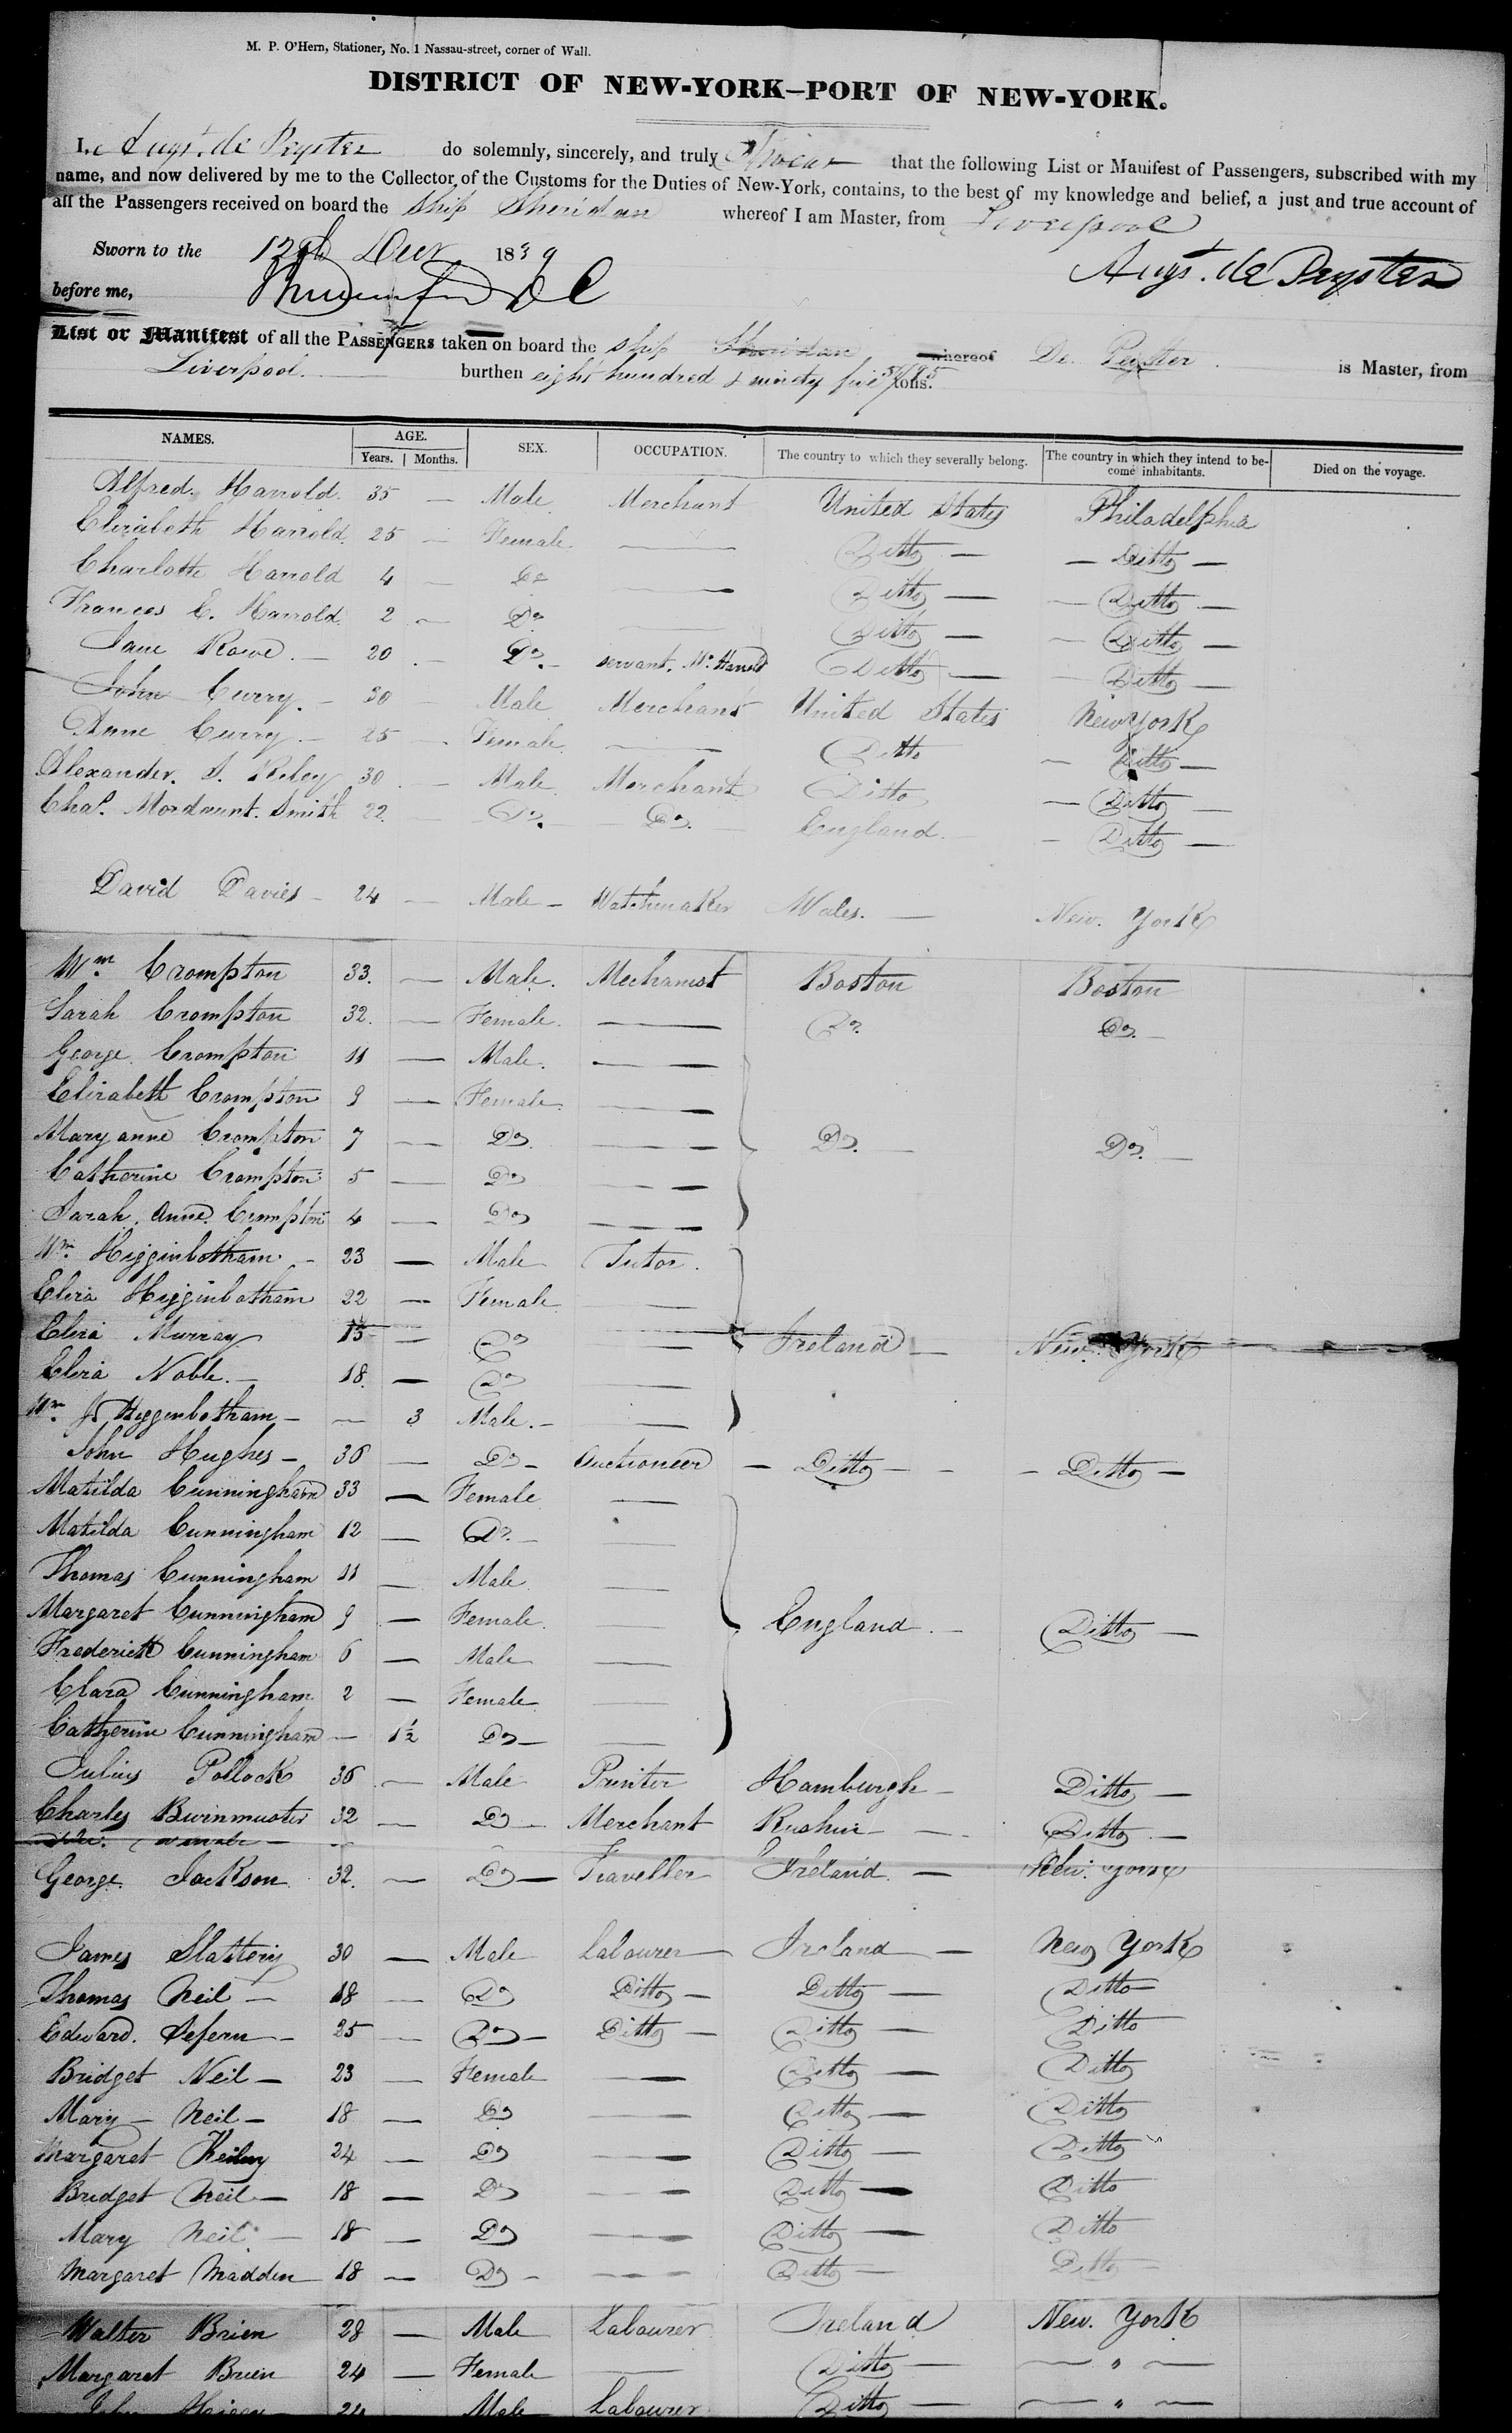 M. P. O'Hern, Stationer, No. 1 Nassau-street, corner of Wall.
DISTRICT OF NEW-YORK—PORT OF NEW-YORK.
I, Augt. de Peyster do solemnly, sincerely, and truly Swear that the following List or Manifest of Passengers, subscribed with my
name, and now delivered by me to the Collector of the Customs for the Duties of New-York, contains, to the best of my knowledge and belief, a just and true account of
all the Passengers received on board the Ship Sheridan whereof I am Master, from Liverpool
Sworn to the 12th Decr 1839
Augt. de Peyster
before me,
List or Manifest of all the PASSENGERS taken on board the ship Sheridan whereof De Peyster is Master, from
Liverpool. burthen eight hundred & ninety five tons.
NAMES. AGE. Years. Months. SEX. OCCUPATION. The country to which they severally belong. The country in which they intend to become inhabitants. Died on the voyage.
Alfred Harrold. 35 — Male Merchant United States Philadelphia
Elizabeth Harrold. 25 — Female — Ditto — Ditto —
Charlotte Harrold 4 — Do — Ditto — Ditto —
Frances E. Harrold. 2 — Do — Ditto — Ditto —
Jane Rowe — 20 — Do — servant. Mr. Harrold Ditto — Ditto —
John Curry. — 30 — Male Merchant United States New York
Anne Curry — 25 — Female — Ditto — Ditto —
Alexander. S. Riley 30 — Male Merchant Ditto — Ditto —
Chas. Mordaunt. Smith 22. Do. — Do. England — Ditto —
David Davies — 24 — Male — Watchmaker Wales. — New. York
Wm. Crompton 33. — Male. Mechanist Boston Boston
Sarah Crompton 32. — Female. — Do. Do. —
George Crompton 11 — Male. —
Elizabeth Crompton 9 — Female. —
Mary anne Crompton 7 — Do. — Do. — Do. —
Catherine Crompton 5 — Do —
Sarah. Anne. Crompton 4 — Do —
Wm. Higginbotham — 23 — Male Tutor.
Eliza Higginbotham 22 — Female —
Eliza Murray 15 — Do — Ireland — New. York
Eliza Noble. — 18. — Do —
Wm. Jr Higgenbotham — — 3 Male. — —
John Hughes — 36 — Do — Auctioneer — Ditto — — Ditto —
Matilda Cunningham 33 — Female —
Matilda Cunningham 12 — Do. — —
Thomas Cunningham 11 — Male —
Margaret Cunningham 9 — Female — England. — Ditto —
Frederick Cunningham 6 — Male —
Clara Cunningham 2 — Female —
Catherine Cunningham — 1½ Do — —
Julius Pollock 36 — Male Printer Hamburgh — Ditto —
Charles 32 — Do — Merchant — Ditto —
George Jackson 32. — Do — Traveller Ireland. — New. York
James Slattery 30 — Male Labourer Ireland — New York
Thomas Neil — 18 — Do Ditto — Ditto — Ditto
Edward. — 25 — Do — Ditto — Ditto — Ditto
Bridget Neil — 23 — Female — Ditto — Ditto
Mary — Neil — 18 — Do — Ditto — Ditto
Margaret 24 — Do — Ditto — Ditto
Bridget Neil — 18 — Do — Ditto — Ditto
Mary Neil — 18 — Do — Ditto — Ditto
Margaret Madden — 18 — Do — — Ditto — Ditto
Walter Brien 28 — Male Labourer Ireland New. York
Margaret Brien 24 — Female — Ditto — — " —
John 24 Male Labourer Ditto — — " —